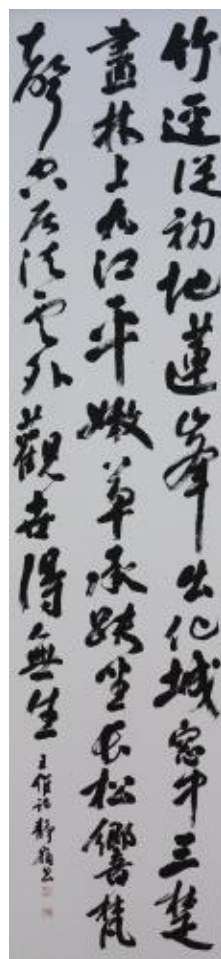 竹逕從初地蓮峯出化城窓中三楚
盡林上九江平嫩草承趺坐長松響梵
聲空居法雲外觀世得無生 王維詩